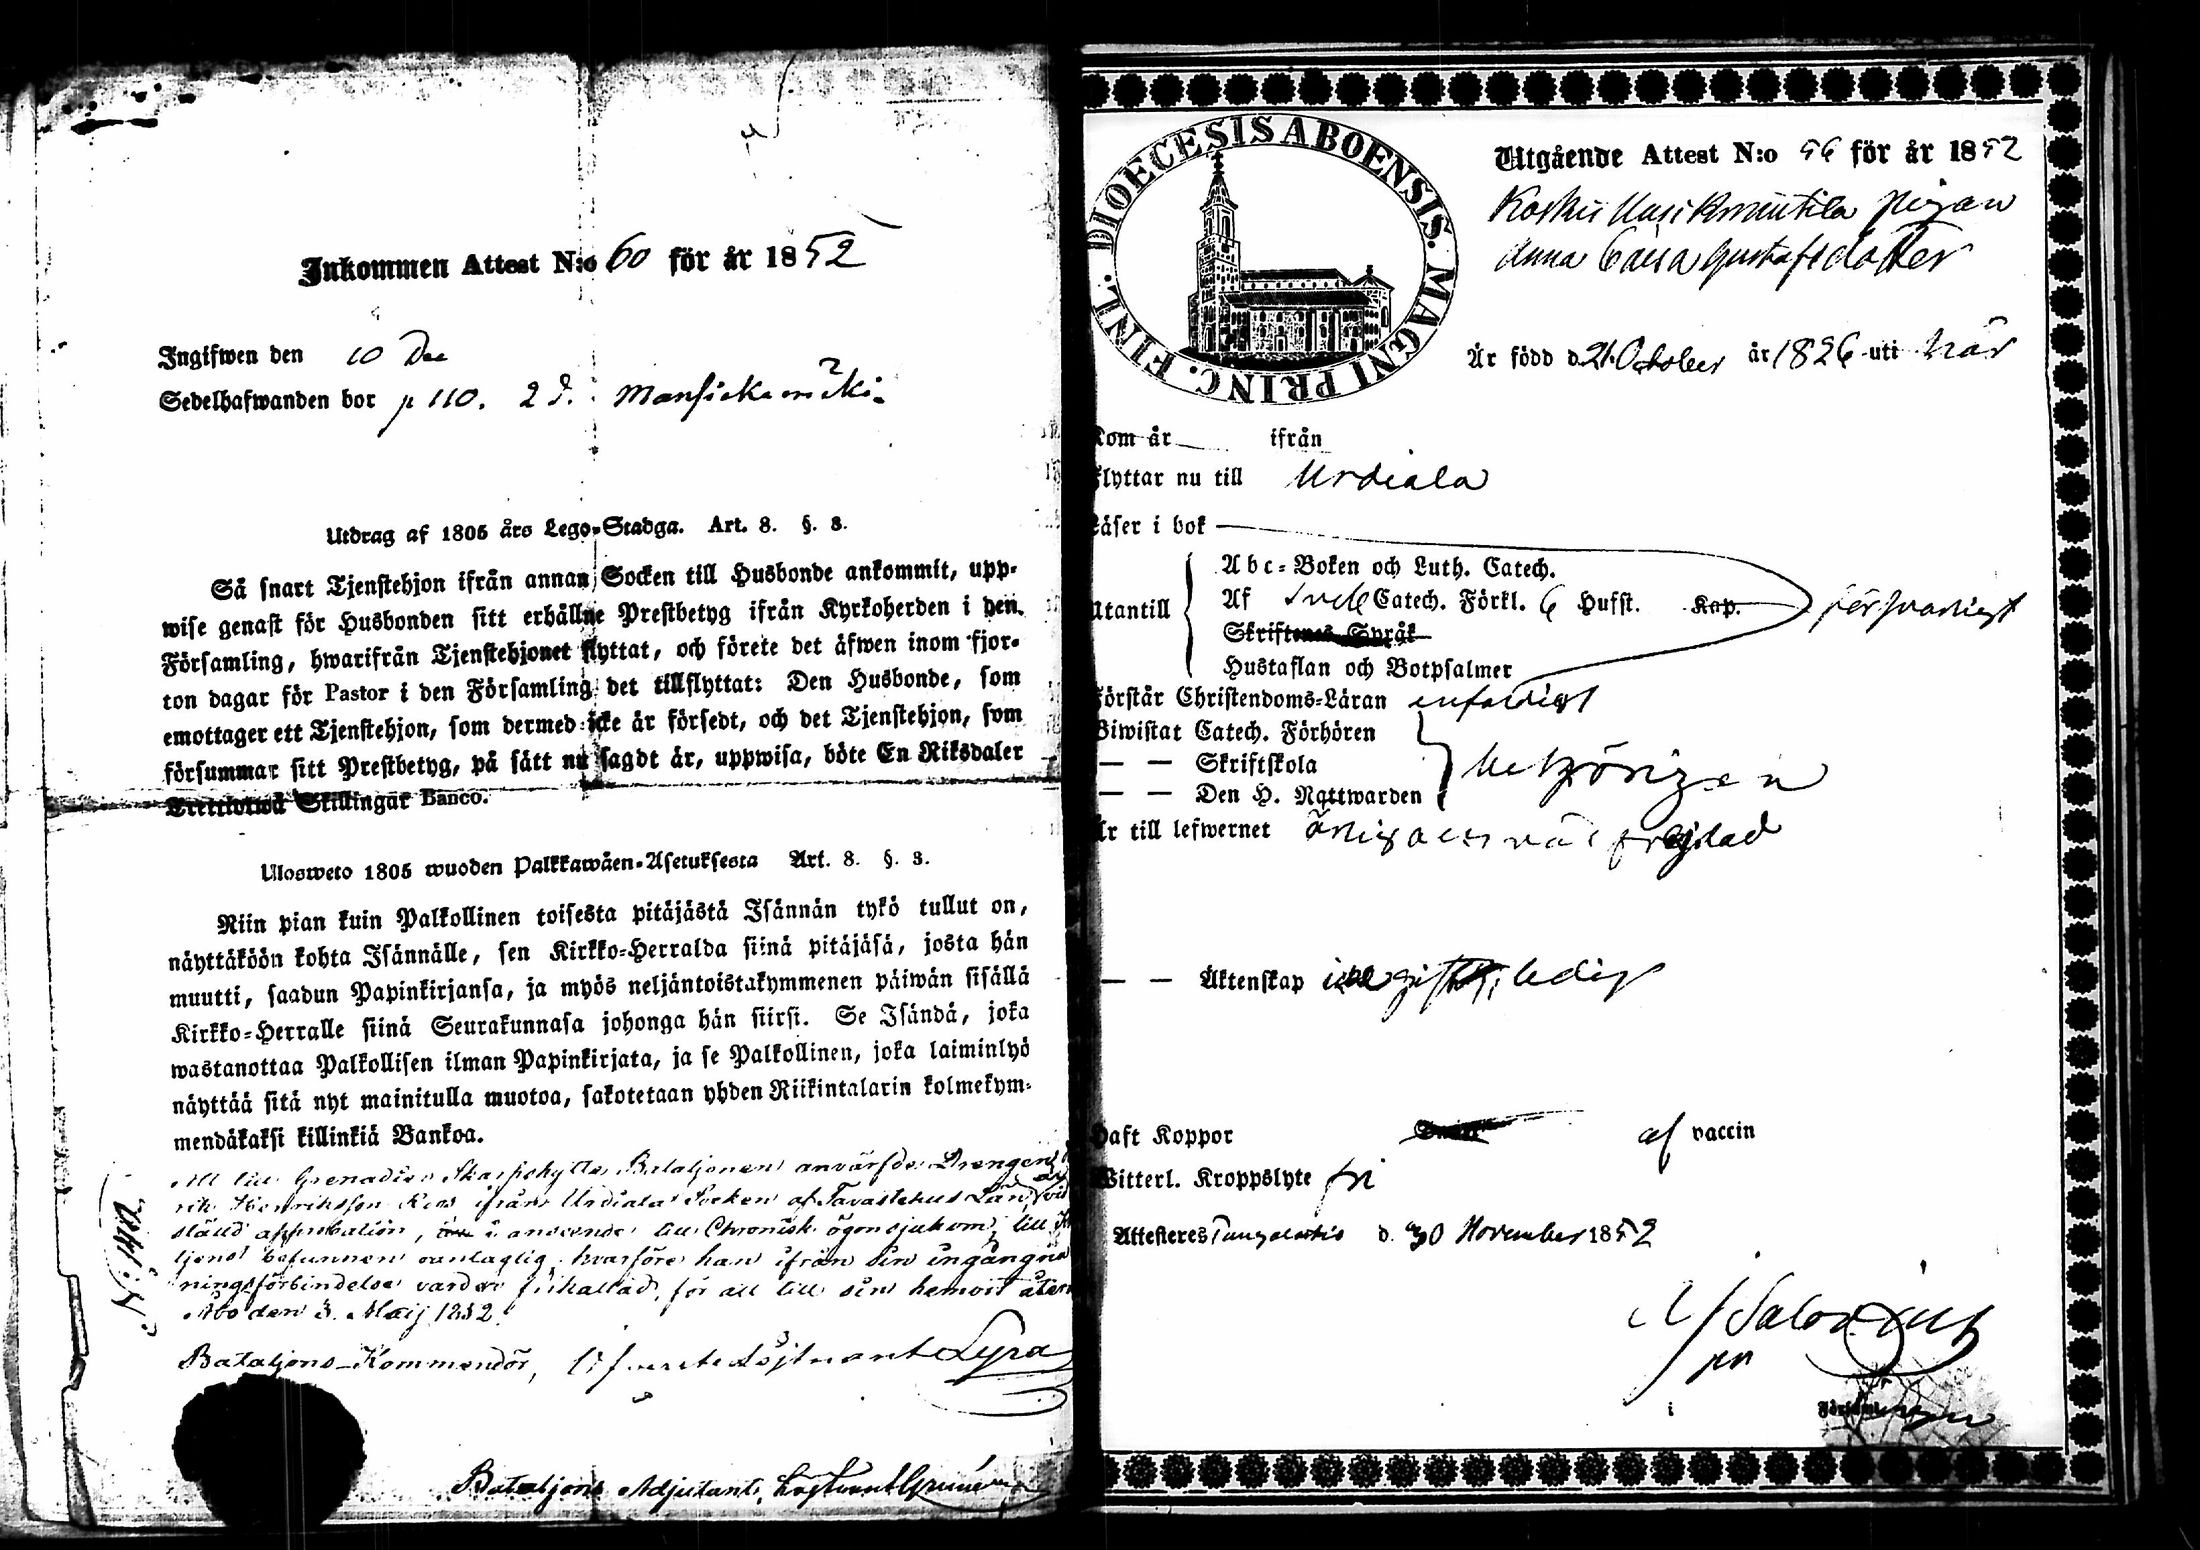 Inkommen Attest N:o 60 för år 1852
Ingifwen den 10 Dec
Sedelhafwanden bor p 110. 2 d. Mansickamäki
Utdrag af 1805 års Lego-Stadga. Art. 8. §. 3.
Så snart Tjenstehjon ifrån annan Socken till Husbonde ankommit, upp-
wise genast för Husbonden sitt erhållne Prestbetyg ifrån Kyrkoherden i den
Församling, hwarifrån Tjenstehjonet flyttat, och förete det äfwen inom fjor-
ton dagar för Pastor i den Församling det tillflyttat: Den Husbonde, som
emottager ett Tjenstehjon, som dermed icke är försedt, och det Tjenstehjon, som
försummar sitt Prestbetyg, på sätt nu sagdt är, uppwisa, böte En Riksdaler
Trettiotwå Skillingar Banco.
Ulosweto 1805 wuoden Palkkawäen-Asetuksesta Art. 8. §. 3.
Niin pian kuin Palkollinen toisesta pitäjästä Isännän tykö tullut on,
näyttäköön kohta Isännälle, sen Kirkko-Herralda siinä pitäjäsä, josta hän
muutti, saadun Papinkirjansa, ja myös neljäntoistakymmenen päiwän sisällä
Kirkko-Herralle siinä Seurakunnasa johonga hän siirsi. Se Isändä, joka
wastanottaa Palkollisen ilman Papinkirjata, ja se Palkollinen, joka laiminlyö
näyttää sitä nyt mainitulla muotoa, sakotetaan yhden Riikintalarin kolmekym-
mendäkaksi killinkiä Bankoa.
Att till Grenadier Skarpskytte Bataljonen anvärfde Drengen
rik Henriksson Ros ifrån Urdiala Socken af Tavastehus Län,
ständ approbation, i anseende till Chronisk ögonsjukdom, till
tjenst befunnen oantaglig, hvarföre han ifrån sin ingångna
ningsförbindelse varder frikallad, för att till sin hemort åter
Åbo den 3. Maij 1852
Bataljons-Kommendör, Löjtnant Lyra
Bataljons Adjutant, Löjtnant
Utgående Attest N:o 56 för år 1852
Koskis pigan
Anna Caisa Gustafsdotter
DIOECESIS ABOENSIS. MAGNI PRINC. FINL.
Är född d. 21 October år 1826 uti här
Kom år — ifrån
Flyttar nu till Urdiala
Läser i bok
Abc-Boken och Luth. Catech.
Utantill Af Sveb Catech. Förkl. 6 Hufst. Kap. försvarligt
Skriftenes Språk
Hustaflan och Botpsalmer
Förstår Christendoms-Läran enfaldigt
Biwistat Catech. Förhören
— — Skriftskola behörigen
— — Den H. Nattwarden
Är till lefwernet ärlig och väl frejdad
— — Äktenskap ledig
Haft Koppor af vaccin
Witterl. Kroppslyte fri
Attesteres d. 30 November 1852
i Församlingen